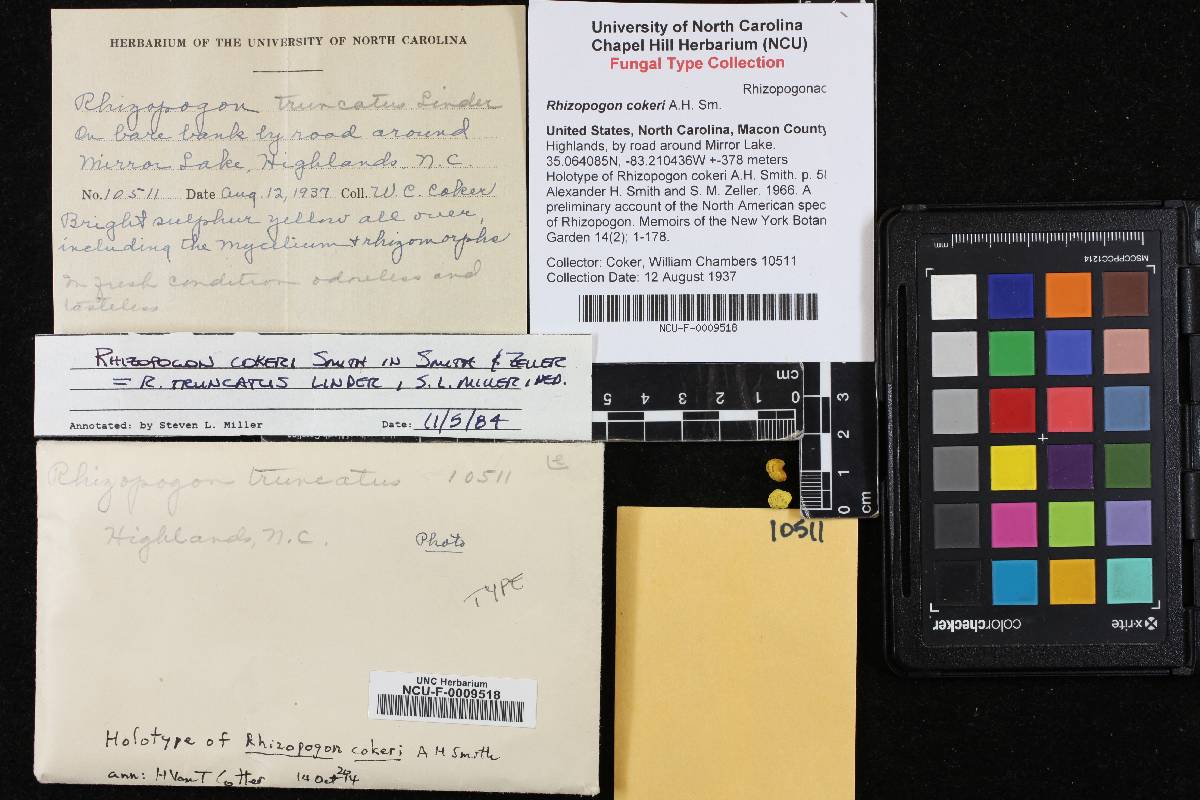 HERBARIUM OF THE UNIVERSITY OF NORTH CAROLINA
Rhizopogon truncatus Linder
On bare bank by road around
Mirror Lake, Highlands, N.C.
No. 10511 Date Aug. 12, 1937 Coll. W. C. Coker
Bright sulphur yellow all over,
including the mycelium + rhizomorphs
In fresh condition odorless and
tasteless
University of North Carolina
Chapel Hill Herbarium (NCU)
Fungal Type Collection
Rhizopogonac
Rhizopogon cokeri A.H. Sm.
United States, North Carolina, Macon County
Highlands, by road around Mirror Lake.
35.064085N, -83.210436W +-378 meters
Holotype of Rhizopogon cokeri A.H. Smith. p. 5
Alexander H. Smith and S. M. Zeller. 1966. A
preliminary account of the North American spec
of Rhizopogon. Memoirs of the New York Botan
Garden 14(2); 1-178.
Collector: Coker, William Chambers 10511
Collection Date: 12 August 1937
NCU-F-0009518
RHIZOPOGON COKERI SMITH IN SMITH & ZELLER
= R. TRUNCATUS LINDER, S. L. MILLER, NED.
Annotated: by Steven L. Miller Date: 11/5/84
cm
5 4 3 2 1 0
3
2
1
0
cm
Rhizopogon truncatus 10511
Highlands, N.C.
Photo
TYPE
UNC Herbarium
NCU-F-0009518
Holotype of Rhizopogon cokeri A H Smith
ann: H VanT Cotter 14 Oct 2014
10511
mm
MSCCPPCC1214
colorchecker
x-rite